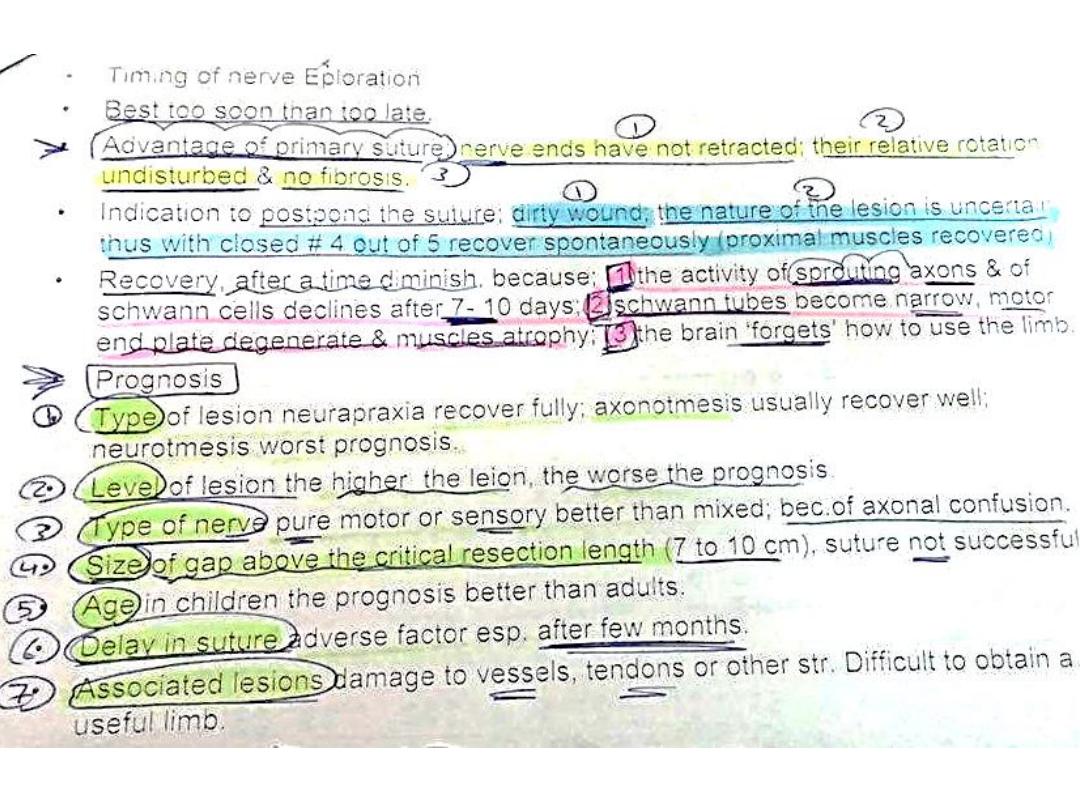 • Timing of nerve Eploration
• Best too soon than too late.
Advantage of primary suture; nerve ends have not retracted; their relative rotation
undisturbed & no fibrosis.
① ② ③
• Indication to postpond the suture; dirty wound; the nature of the lesion is uncertai
thus with closed # 4 out of 5 recover spontaneously (proximal muscles recovered)
① ②
• Recovery, after a time diminish, because; 1 the activity of sprouting axons & of
schwann cells declines after 7- 10 days; 2 schwann tubes become narrow, motor
end plate degenerate & muscles atrophy; 3 the brain 'forgets' how to use the limb.
Prognosis
① Type of lesion neurapraxia recover fully; axonotmesis usually recover well;
neurotmesis worst prognosis.
②. Level of lesion the higher the leion, the worse the prognosis.
③ Type of nerve pure motor or sensory better than mixed; bec.of axonal confusion.
④ Size of gap above the critical resection length (7 to 10 cm), suture not successful
⑤ Age in children the prognosis better than adults.
⑥. Delay in suture adverse factor esp. after few months.
⑦. Associated lesions damage to vessels, tendons or other str. Difficult to obtain a
useful limb.